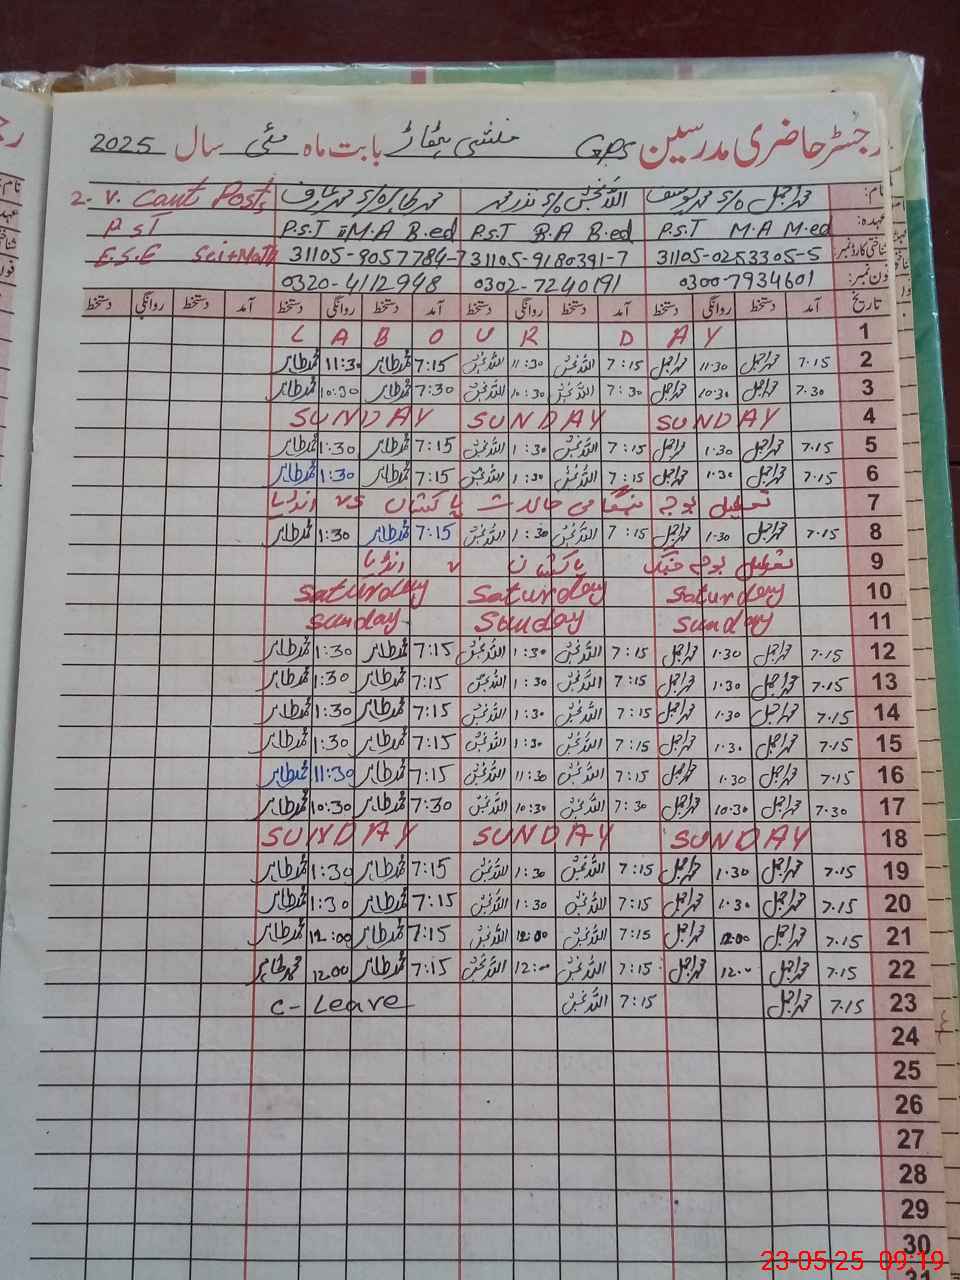 رجسٹر حاضری مدرسین GPS منشی ہٹھاڑ بابت ماہ مئی سال 2025
نام: محمد اجمل S/o محمد یوسف اللہ بخش S/o نذر محمد محمد طاہر S/o محمد عارف 2. V. Cant Posts
عہدہ: P.S.T M.A M.ed P.S.T B.A B.ed P.S.T M.A B.ed P.S.T
شناختی کارڈ نمبر: 31105-0253305-5 31105-9180391-7 31105-9057784-7 E.S.E Sci+Math
فون نمبر: 0300-7934601 0302-7240191 0320-4112948
تاریخ آمد دستخط روانگی دستخط آمد دستخط روانگی دستخط آمد دستخط روانگی دستخط آمد دستخط روانگی دستخط
1 L A B O U R D A Y
2 7.15 محمد اجمل 11.30 محمد اجمل 7:15 اللہ بخش 11:30 اللہ بخش 7:15 محمد طاہر 11:30 محمد طاہر
3 7.30 محمد اجمل 10.30 محمد اجمل 7:30 اللہ بخش 10:30 اللہ بخش 7:30 محمد طاہر 10:30 محمد طاہر
4 SUNDAY SUNDAY SUNDAY
5 7.15 محمد اجمل 1.30 محمد اجمل 7:15 اللہ بخش 1:30 اللہ بخش 7:15 محمد طاہر 1:30 محمد طاہر
6 7.15 محمد اجمل 1.30 محمد اجمل 7:15 اللہ بخش 1:30 اللہ بخش 7:15 محمد طاہر 1:30 محمد طاہر
7 تعطیل بوجہ ہنگامی حالات پاکستان vs انڈیا
8 7.15 محمد اجمل 1.30 محمد اجمل 7:15 اللہ بخش 1:30 اللہ بخش 7:15 محمد طاہر 1:30 محمد طاہر
9 تعطیل بوجہ جنگ پاکستان v انڈیا
10 Saturday Saturday Saturday
11 Sunday Sunday Sunday
12 7.15 محمد اجمل 1.30 محمد اجمل 7:15 اللہ بخش 1:30 اللہ بخش 7:15 محمد طاہر 1:30 محمد طاہر
13 7.15 محمد اجمل 1.30 محمد اجمل 7:15 اللہ بخش 1:30 اللہ بخش 7:15 محمد طاہر 1:30 محمد طاہر
14 7.15 محمد اجمل 1.30 محمد اجمل 7:15 اللہ بخش 1:30 اللہ بخش 7:15 محمد طاہر 1:30 محمد طاہر
15 7.15 محمد اجمل 1.30 محمد اجمل 7:15 اللہ بخش 1:30 اللہ بخش 7:15 محمد طاہر 1:30 محمد طاہر
16 7.15 محمد اجمل 1.30 محمد اجمل 7:15 اللہ بخش 11:30 اللہ بخش 7:15 محمد طاہر 11:30 محمد طاہر
17 7.30 محمد اجمل 10.30 محمد اجمل 7:30 اللہ بخش 10:30 اللہ بخش 7:30 محمد طاہر 10:30 محمد طاہر
18 SUNDAY SUNDAY SUNDAY
19 7.15 محمد اجمل 1.30 محمد اجمل 7:15 اللہ بخش 1:30 اللہ بخش 7:15 محمد طاہر 1:30 محمد طاہر
20 7.15 محمد اجمل 1.30 محمد اجمل 7:15 اللہ بخش 1:30 اللہ بخش 7:15 محمد طاہر 1:30 محمد طاہر
21 7.15 محمد اجمل 12.00 محمد اجمل 7:15 اللہ بخش 12:00 اللہ بخش 7:15 محمد طاہر 12:00 محمد طاہر
22 7.15 محمد اجمل 12.00 محمد اجمل 7:15 اللہ بخش 12:00 اللہ بخش 7:15 محمد طاہر 12.00 محمد طاہر
23 7.15 محمد اجمل 7:15 اللہ بخش C- Leave
24
25
26
27
28
29
30
31
23-05-25 09:19